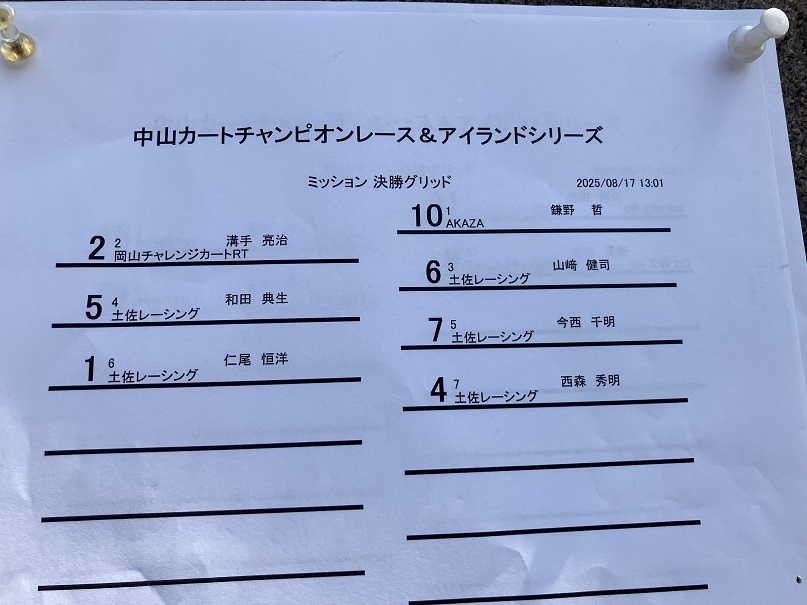 中山カートチャンピオンレース＆アイランドシリーズ
ミッション 決勝グリッド 2025/08/17 13:01
10 1 鎌野 哲
AKAZA
2 2 溝手 亮治
岡山チャレンジカートRT
6 3 山﨑 健司
土佐レーシング
5 4 和田 典生
土佐レーシング
7 5 今西 千明
土佐レーシング
1 6 仁尾 恒洋
土佐レーシング
4 7 西森 秀明
土佐レーシング